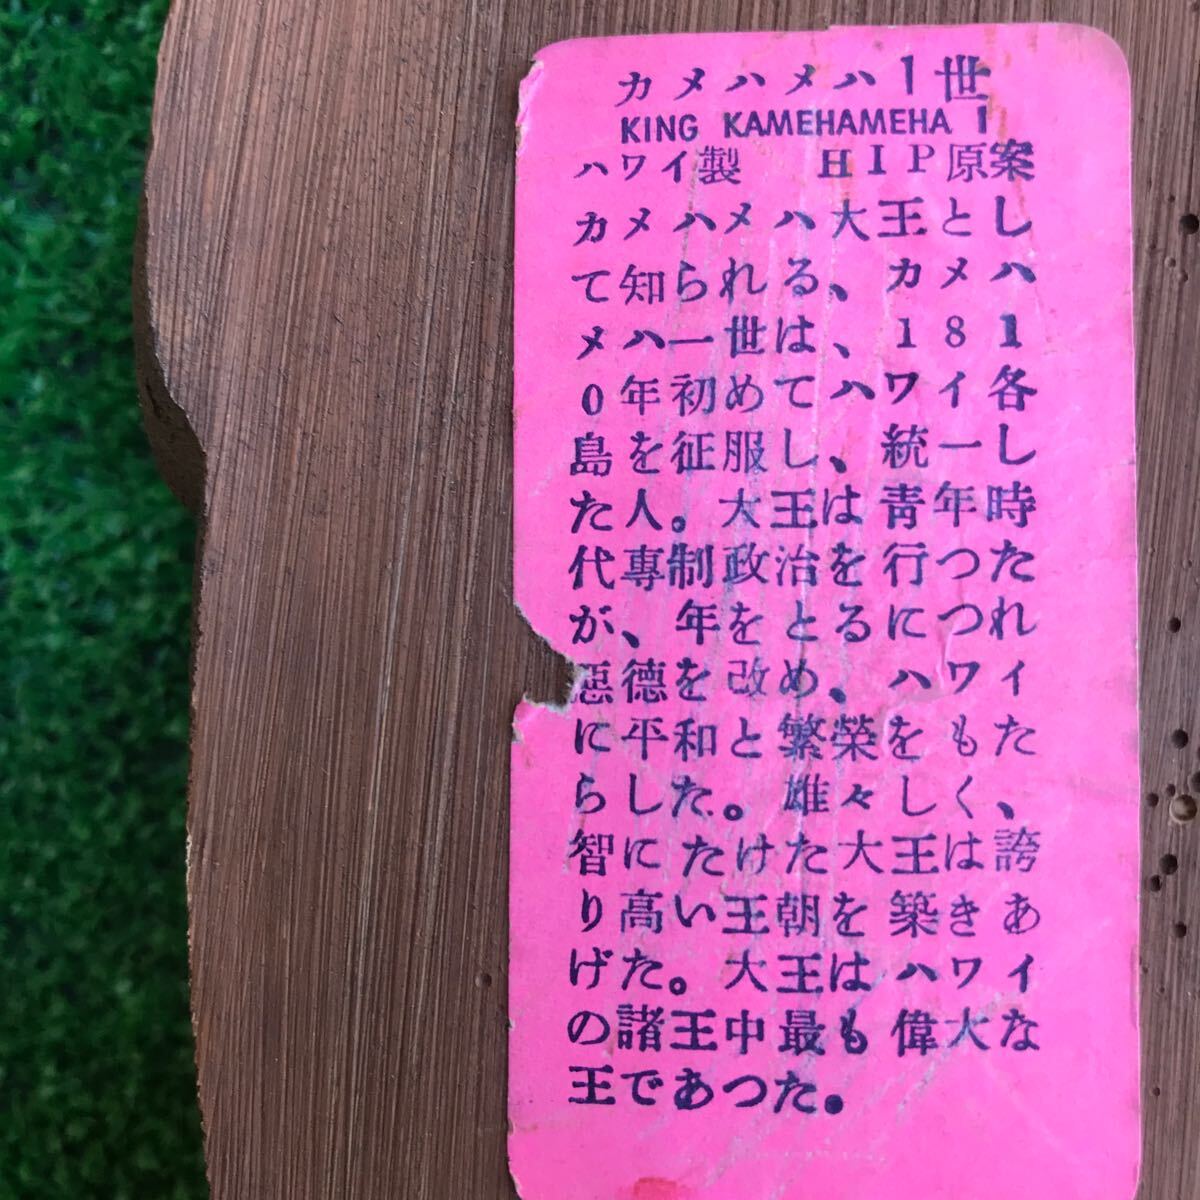 カメハメハ1世
KING KAMEHAMEHA I
ハワイ製 HIP原案
カメハメハ大王とし
て知られる、カメハ
メハ一世は、181
0年初めてハワイ各
島を征服し、統一し
た人。大王は青年時
代專制政治を行つた
が、年をとるにつれ
惡德を改め、ハワイ
に平和と繁榮をもた
らした。雄々しく、
智にたけた大王は誇
り高い王朝を築きあ
げた。大王はハワイ
の諸王中最も偉大な
王であつた。